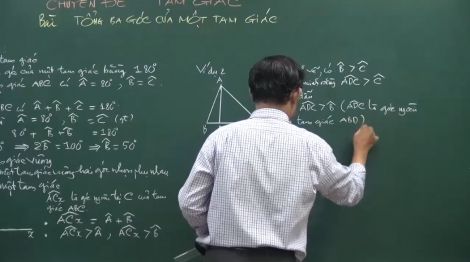 CHUYÊN ĐỀ TAM GIÁC
Bài TỔNG BA GÓC CỦA MỘT TAM GIÁC
tam giác
góc của một tam giác bằng 180°
giác ABC có Â = 80°, B̂ = Ĉ
BC có Â + B̂ + Ĉ = 180°
80° + B̂ + B̂ = 180°
⇒ 2B̂ = 100° ⇒ B̂ = 50°
giác vuông
một tam giác vuông hai góc nhọn phụ nhau
một tam giác
ACx là góc ngoài tại C của tam
giác ABC
• ACx = Â + B̂
x • ACx > Â, ACx > B̂
Ví dụ 2
A
B
vẽ, có B̂ > Ĉ
minh rằng ADC > Ĉ
ADC > B̂ (ADC là góc ngoài
tam giác ABD)